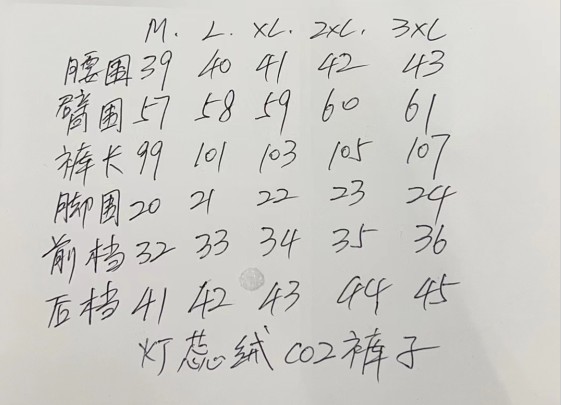 M. L. XL. 2XL. 3XL
腰围 39 40 41 42 43
臂围 57 58 59 60 61
裤长 99 101 103 105 107
脚围 20 21 22 23 24
前档 32 33 34 35 36
后档 41 42 43 44 45
灯蕊绒 C02 裤子